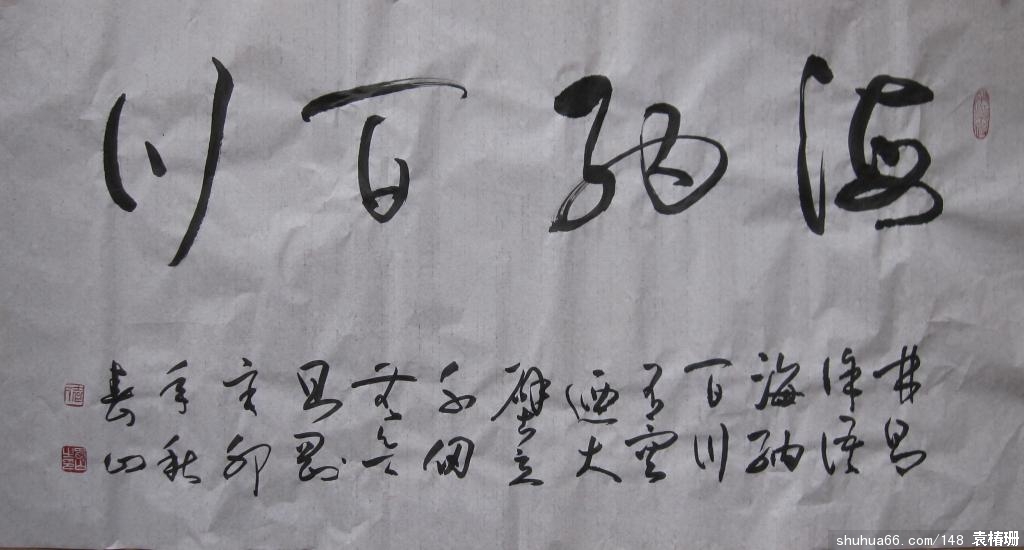 海納百川
林則
徐語
海納
百川
有容
迺大
壁立
千仞
無欲
則剛
辛卯
年秋
春山
shuhua66.com/148 袁椿珊